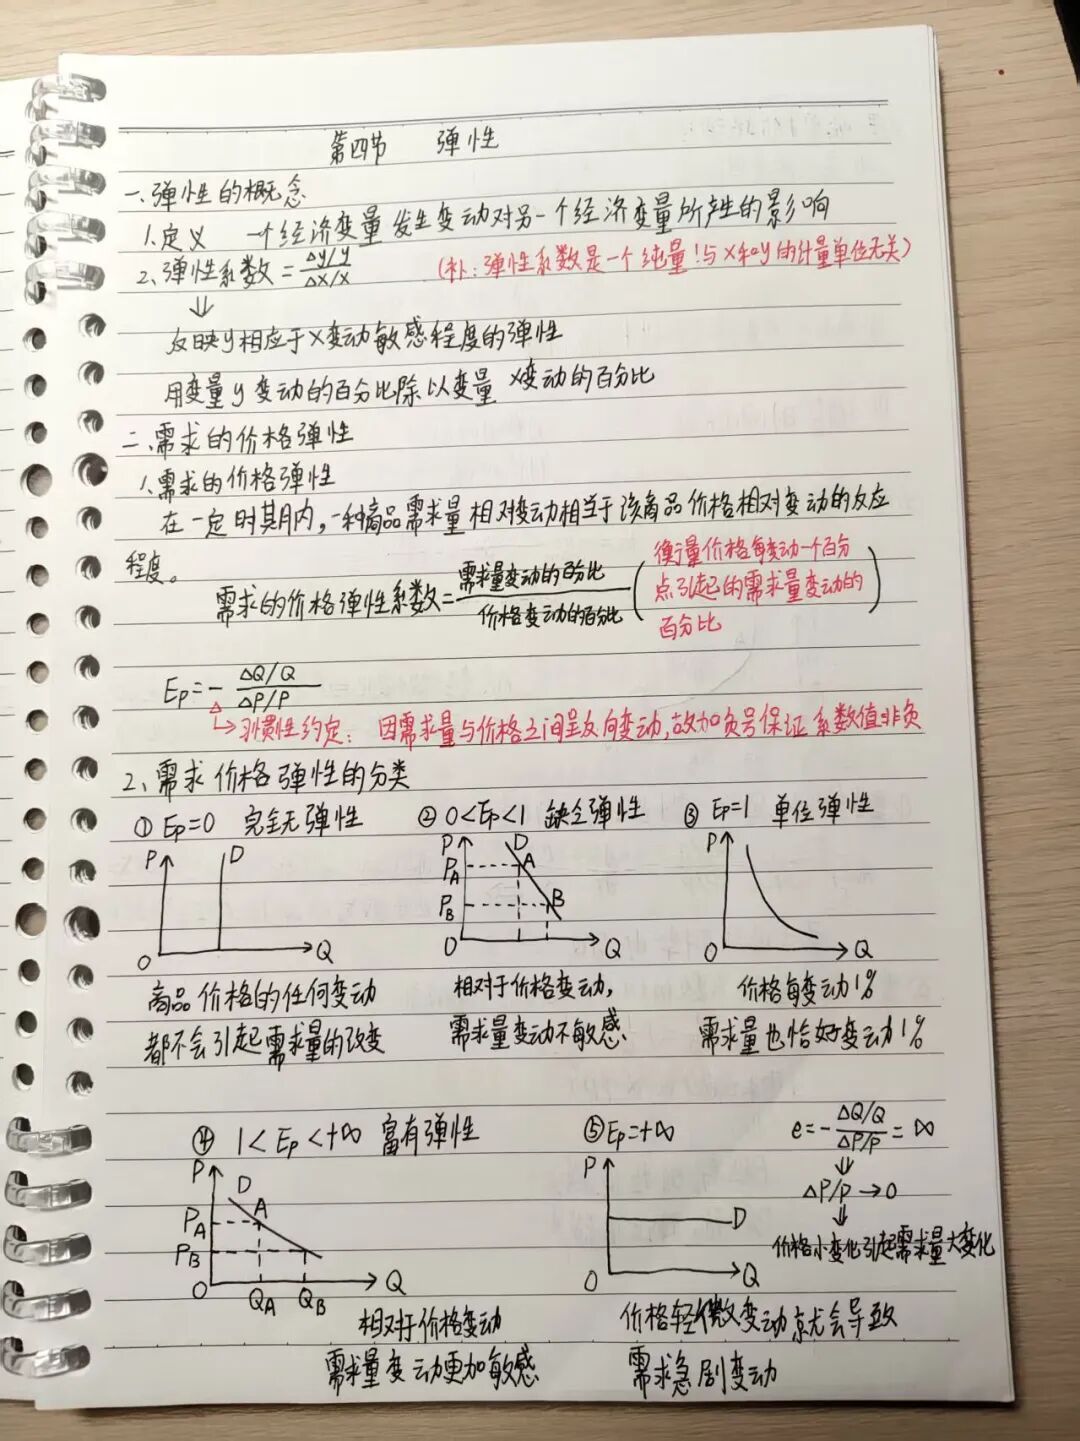 第四节 弹性
一、弹性的概念
1、定义 一个经济变量发生变动对另一个经济变量所产生的影响
2、弹性系数=Δy/y / Δx/x (补:弹性系数是一个纯量!与x和y的计量单位无关)
⇓
反映y相应于x变动敏感程度的弹性
用变量y变动的百分比除以变量x变动的百分比
二、需求的价格弹性
1、需求的价格弹性
在一定时期内,一种商品需求量相对变动相当于该商品价格相对变动的反应
程度。
需求的价格弹性系数=需求量变动的百分比 / 价格变动的百分比 (衡量价格每变动一个百分
点引起的需求量变动的
百分比)
Ep=- ΔQ/Q / ΔP/P
Δ
↳习惯性约定:因需求量与价格之间呈反向变动,故加负号保证系数值非负
2、需求价格弹性的分类
① Ep=0 完全无弹性 ② 0<Ep<1 缺乏弹性 ③ Ep=1 单位弹性
P D O Q
P PA PB D A B O Q
P O Q
商品价格的任何变动
都不会引起需求量的改变
相对于价格变动,
需求量变动不敏感
价格每变动1%
需求量也恰好变动1%
④ 1<Ep<+∞ 富有弹性
P D A PA PB O QA QB Q
相对于价格变动
需求量变动更加敏感
⑤ Ep=+∞
P D O Q
e=- ΔQ/Q / ΔP/P = ∞
⇓
ΔP/P→0
⇓
价格小变化引起需求量大变化
价格轻微变动就会导致
需求急剧变动